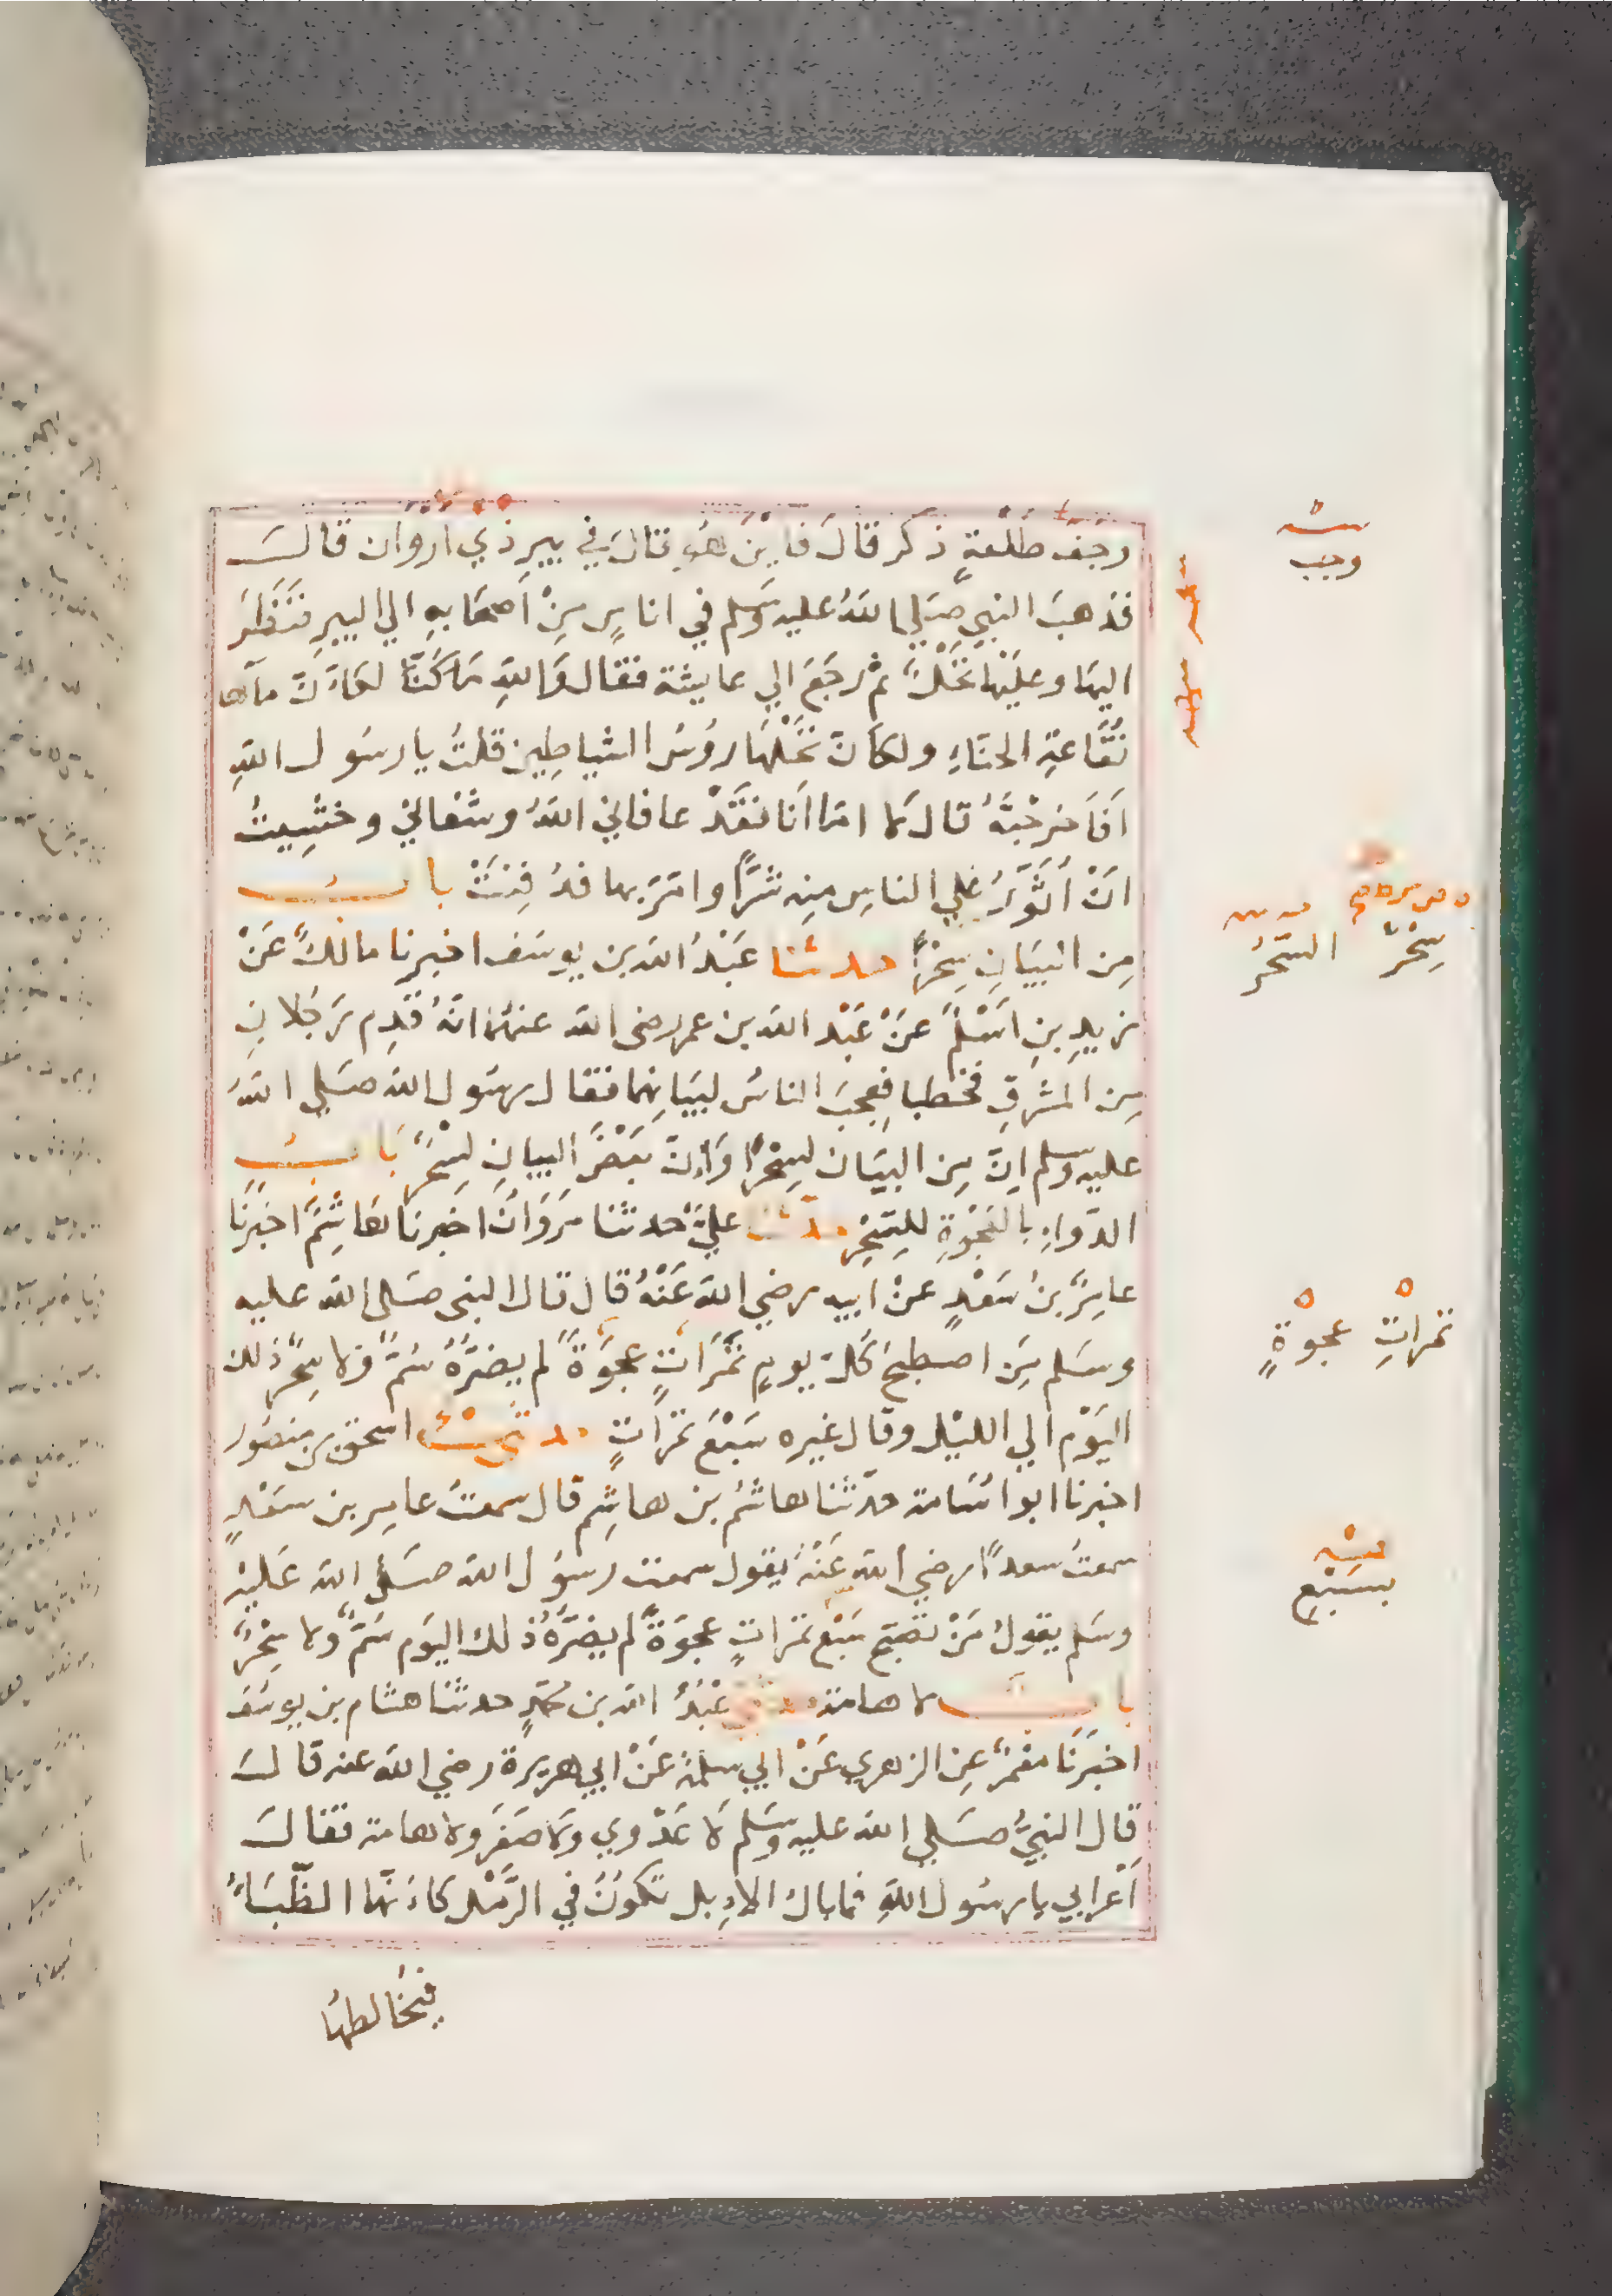 وجف طلعةٍ ذكر قال فاين هو قال في بيرِ ذي اروان قال
فذهبَ النبي صلي الله عليه وسلم في اناسٍ مِنْ اصحابهِ الي البيرِ فنَظَرَ
اليها وعليها نخلٌ ثم رجَعَ الي عايشة فقال والله لكأنّ ماها
نُقَاعة الحنّاءِ ولكأنّ نخْلها روُس الشياطِين قلتُ يا رسُول اللهِ
اَفَاَخرجْتَهُ قال لا امّا اَنا فقَدْ عافاني اللهُ وشَفاني وخشِيتُ
انْ اُثَوِّرَ علي الناسِ منه شرًّا وامَرَ بها فدُفِنَتْ بابُ
مِن البيَانِ سِحْرًا حدثنا عَبْدُ الله بن يوسَف اخبرنا مالكٌ عَنْ
زيدِ بنِ اَسْلَم عنْ عَبْد الله بن عمر رضى الله عنهُما انّهُ قَدِم رَجُلانِ
مِن المشرقِ فخطبا فعجبَ الناسُ لبيَانِهما فقال رسُول الله صَلي اللهُ
عليه وسلم اِنّ مِن البيَان لسِحْرًا وَاِنّ بعَضَ البيانِ لسِحْرٌ بَابُ
الدّواءِ بالعَجْوةِ للسِحْرِ حدثنا عليّ حدثنا مَروَانُ اخبرنا هَاشِمٌ اخبَرنَا
عامِرُ بنُ سَعْدٍ عنْ ابيه رضي الله عَنْهُ قال قال النبى صَلى الله عليه
وسَلم مَن اصطبحَ كُلّ يومٍ تمَرَاتٍ عجوَةً لم يضرّهُ سُمٌّ ولا سِحْرٌ ذلك
اليَوْم الي الليْل وقال غيره سَبْعَ تمرَاتٍ اسحق بن منصُور
اخبرنا ابو اُسَامة حدّثنا هاشمُ بن هاشِم قال سمعتُ عامِر بن سَعْدٍ
سمعتُ سعدًا رضي الله عَنْهُ يقول سمعت رسُول الله صَلى الله عَليْه
وسَلم يقولُ مَنْ تصَبّح سَبْعَ تمراتٍ عجوَةً لم يضرّهُ ذلك اليَوم سَمٌّ ولا سِحْرٌ
بابُ لا هامة حدثنا عَبْدُ الله بن محمّدٍ حدثنا هشام بن يوسُف
اخبَرنَا معْمَرٌ عنِ الزهري عَنْ ابي سلمَة عَنْ ابي هريرة رضي الله عنه قالَ
قال النبيُّ صَلي الله عليه وسَلم لَا عَدْوي ولَا صَفَرَ ولا هامة فقالَ
اَعْرابي يا رسُول اللهِ فما بالُ الاِبِل تكُونُ في الرَّمْل كانّها الظِّباءُ
فيُخَالطهَا
وجب
سِحْرٌ السّحْرُ
تمراتِ عجوةٍ
بسَبْعِ